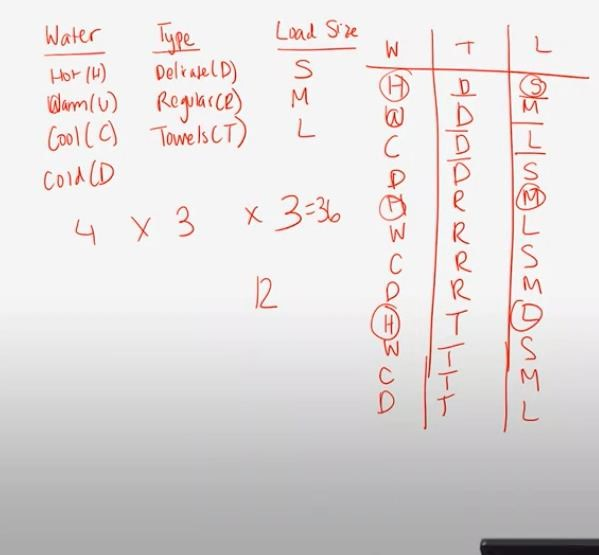 Water Type Load Size
Hot (H) Delicate (D) S
Warm (W) Regular (R) M
Cool (C) Towels (T) L
Cold (D
4 x 3 x 3 = 36
12
W T L
H D S
W D M
C D L
D D S
H R M
W R L
C R S
D R M
H T L
W T S
C T M
D T L